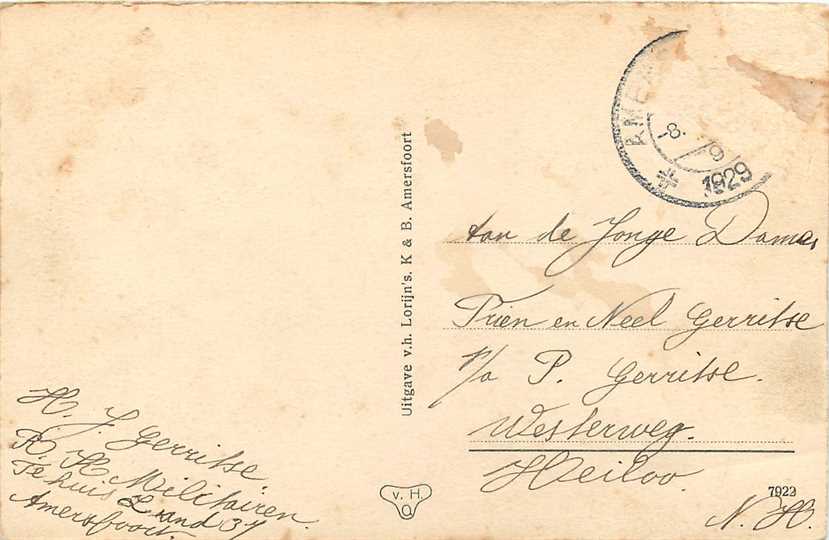 AME
-8. 9
1929
Aan de Jonge Dames
Trien en Neel Gerritse
p/a P. Gerritse.
Westerweg.
Heiloo.
N. H.
7922
Uitgave v.h. Lorijn's. K & B. Amersfoort
v. H.
O
H. J. Gerritse.
R. K. Militairen
Tehuis Zand 37
Amersfoort.